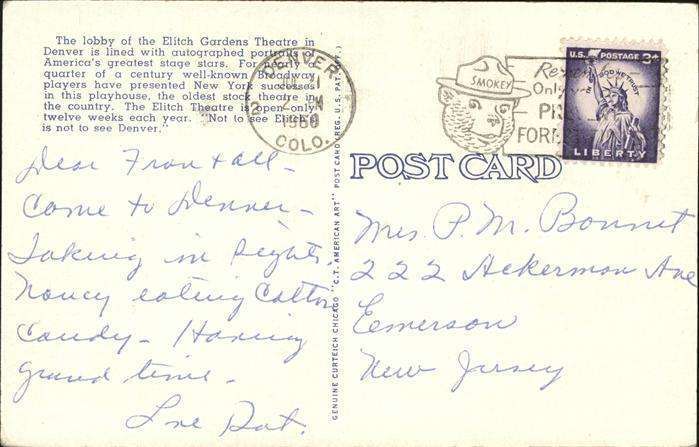 The lobby of the Elitch Gardens Theatre in
Denver is lined with autographed portraits of
America's greatest stage stars. For nearly a
quarter of a century well-known Broadway
players have presented New York successes
in this playhouse, the oldest stock theatre in
the country. The Elitch Theatre is open only
twelve weeks each year. "Not to see Elitch's
is not to see Denver."
DENVER
2 PM
COLO.
SMOKEY
Only
FORE
U.S. POSTAGE 3¢
IN GOD WE TRUST
LIBERTY
POST CARD
GENUINE CURTEICH-CHICAGO "C.T. AMERICAN ART" POST CARD (REG. U.S. PAT. OFF.)
Dear Fran & all -
Come to Denver -
Taking in sights.
Nancy eating Cotton
Candy - Having
grand time -
Love Pat.
Mrs. P. M. Bonnet
222 Ackerman Ave
Emerson
New Jersey